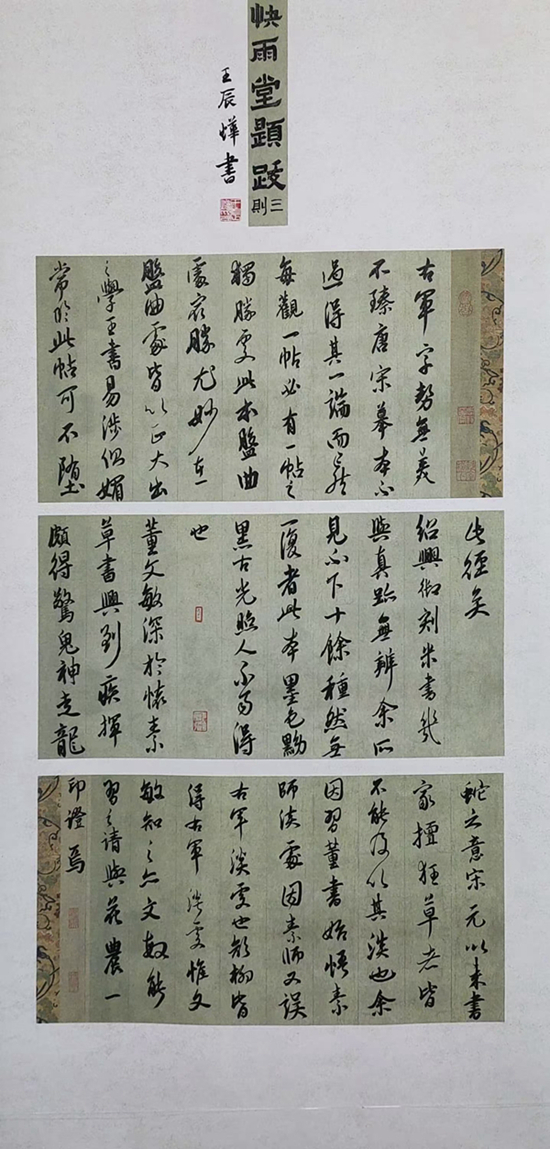 快雨堂題跋
三則
王辰燁書
右軍字勢無美
不臻唐宋摹本不
過得其一端而已然
每觀一帖必有一帖之
獨勝處此本盤曲
處最勝尤妙在一
盤曲處皆以正大出
之學王書易涉俗媚
常於此帖可不墮
此徑矣
紹興御刻米書幾
與真跡無辨余所
見不下十餘種然無
一復者此本墨色黝
黑古光照人不易得
也
董文敏深於懷素
草書興到疾揮
頗得驚鬼神走龍
蛇之意宋元以來書
家擅狂草者皆
不能及以其淡也余
因習董書始悟素
師淡處因素師又誤
右軍淡處也顏柳皆
得右軍淡處惟文
敏知之亦文敏能
習之請與花農一
印證焉